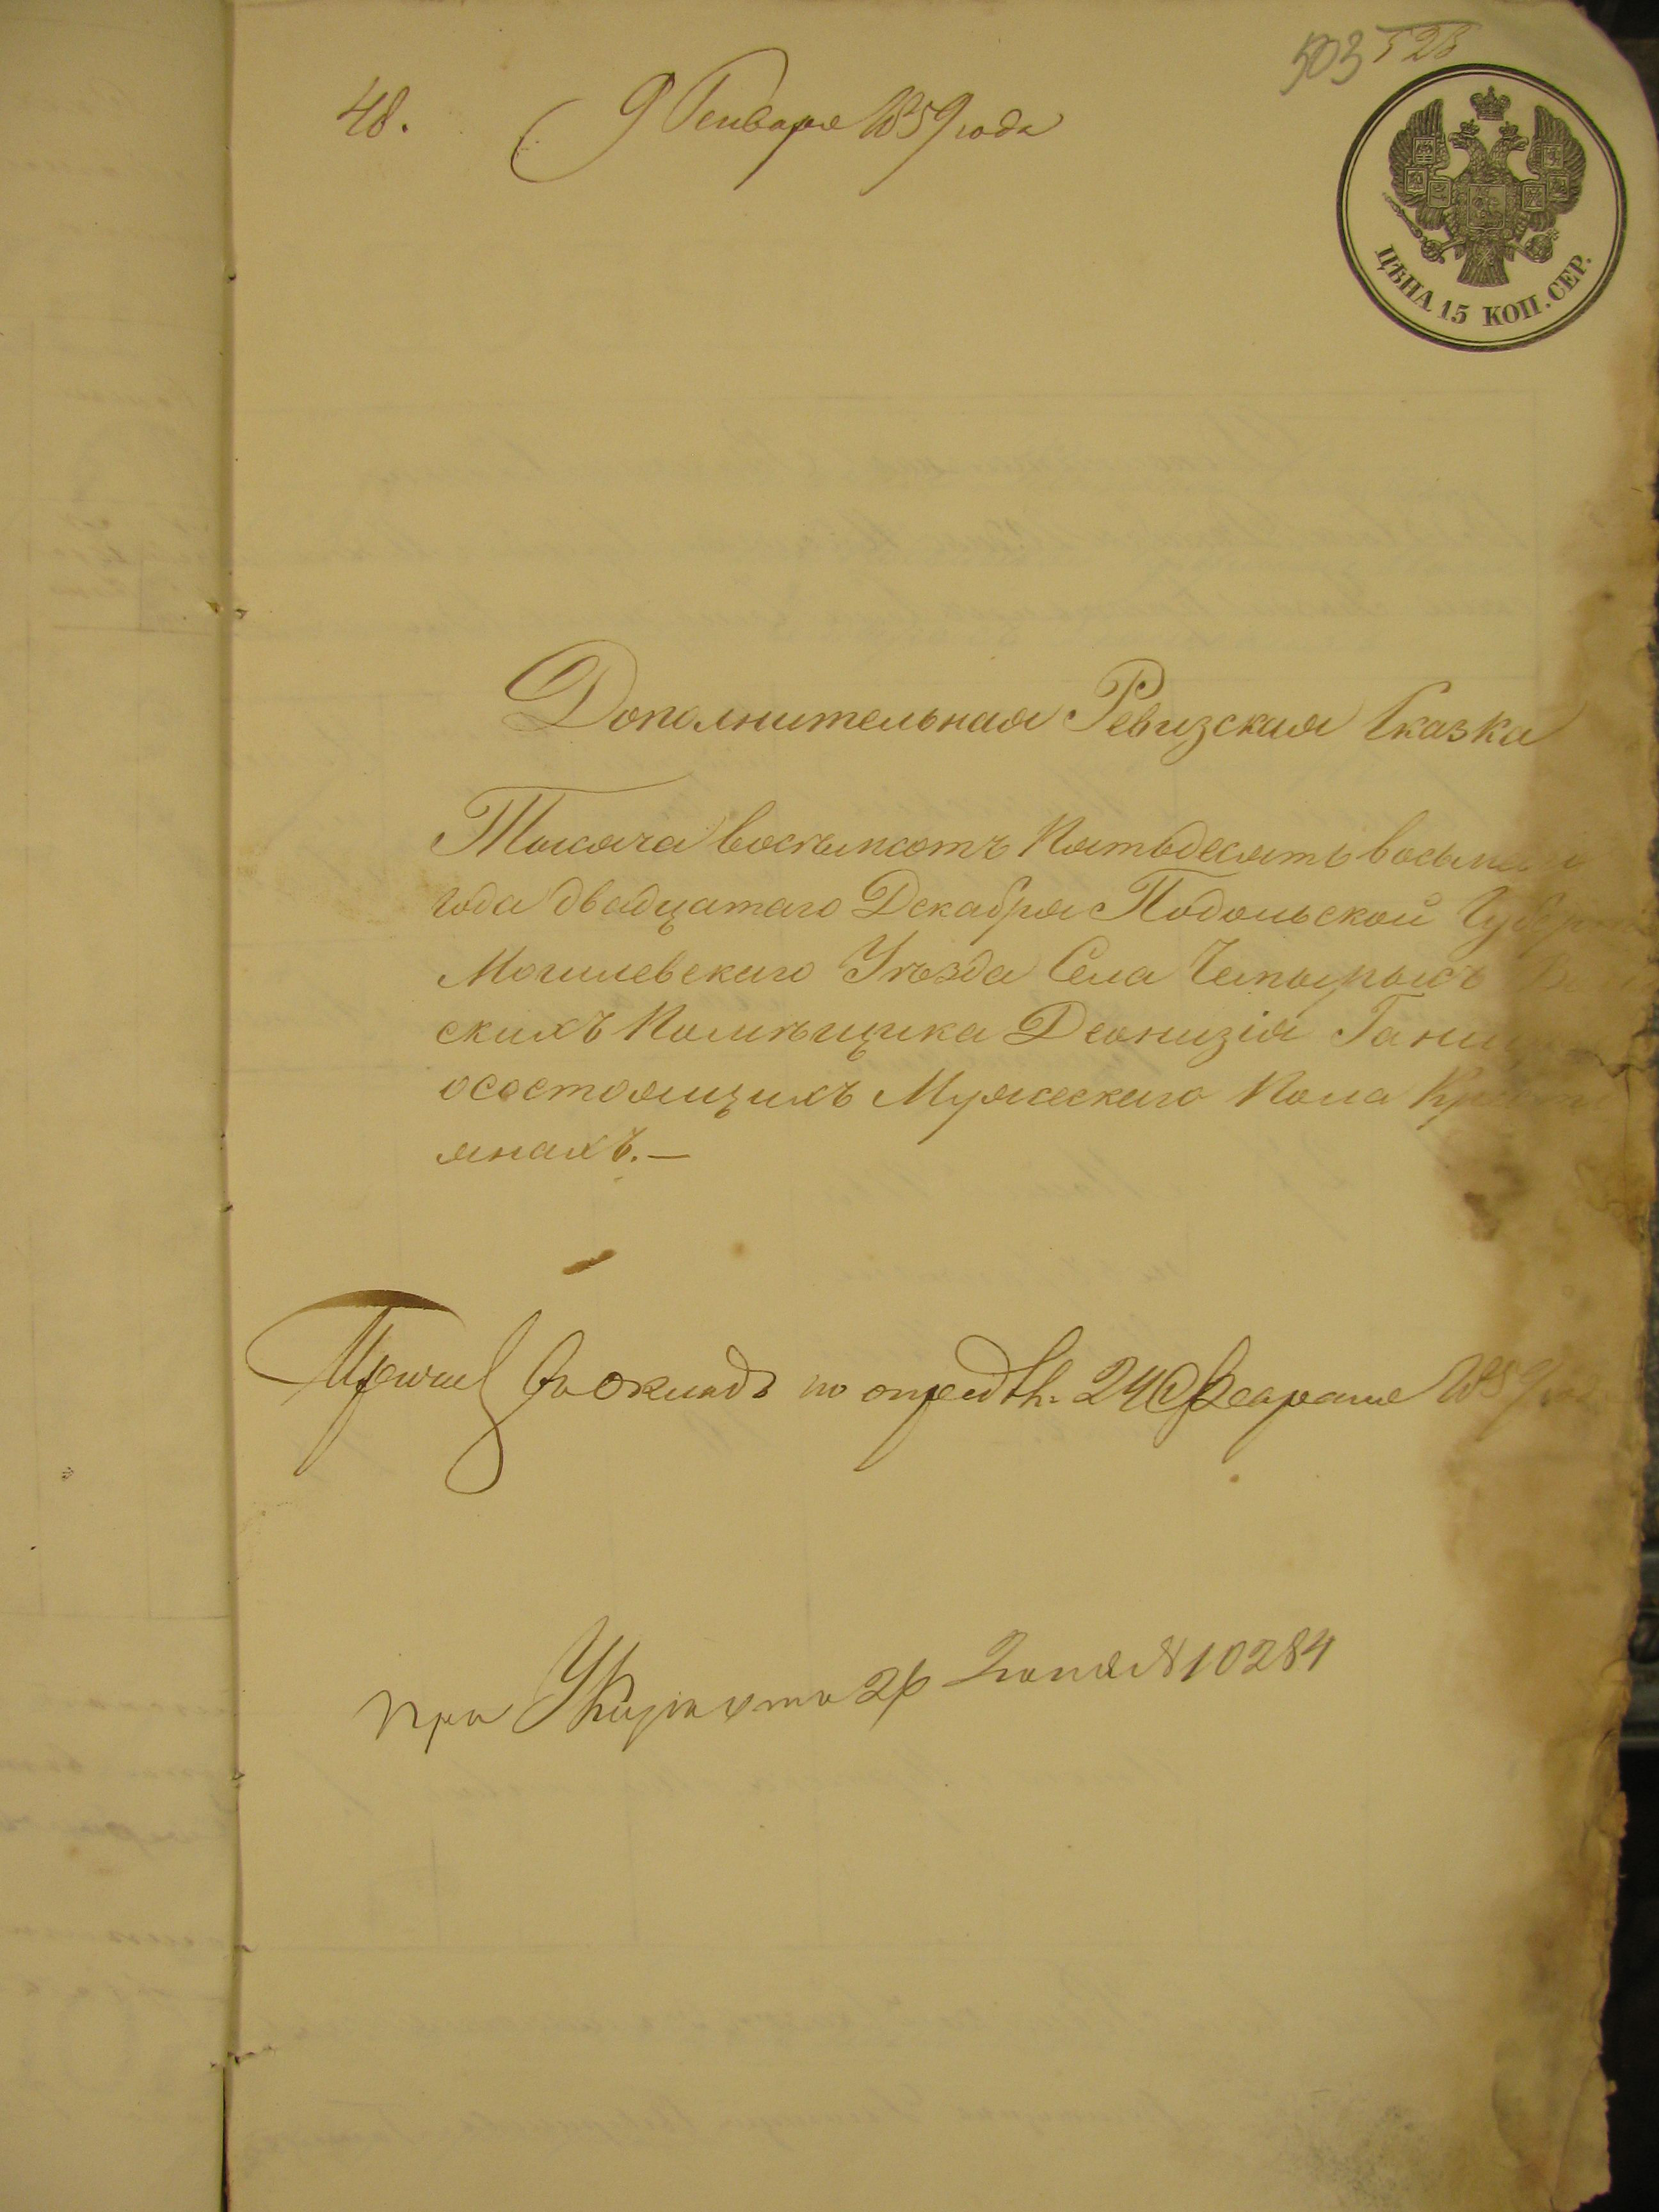 503 523
48. 9 Генваря 1859 года
ЦѢНА 15 КОП. СЕР.
Дополнительная Ревизская Сказка
Тысяча восемьсотъ Пятьдесятъ восьмаго
года двадцатаго Декабря Подольской Губерніи
Могилевскаго Уѣзда Села
скихъ Помѣщика Деонизія
осостоящихъ Мужескаго Пола Кресть
янахъ.—
въ окладъ по опредѣл. 24 Февраля 1859
при № 10284